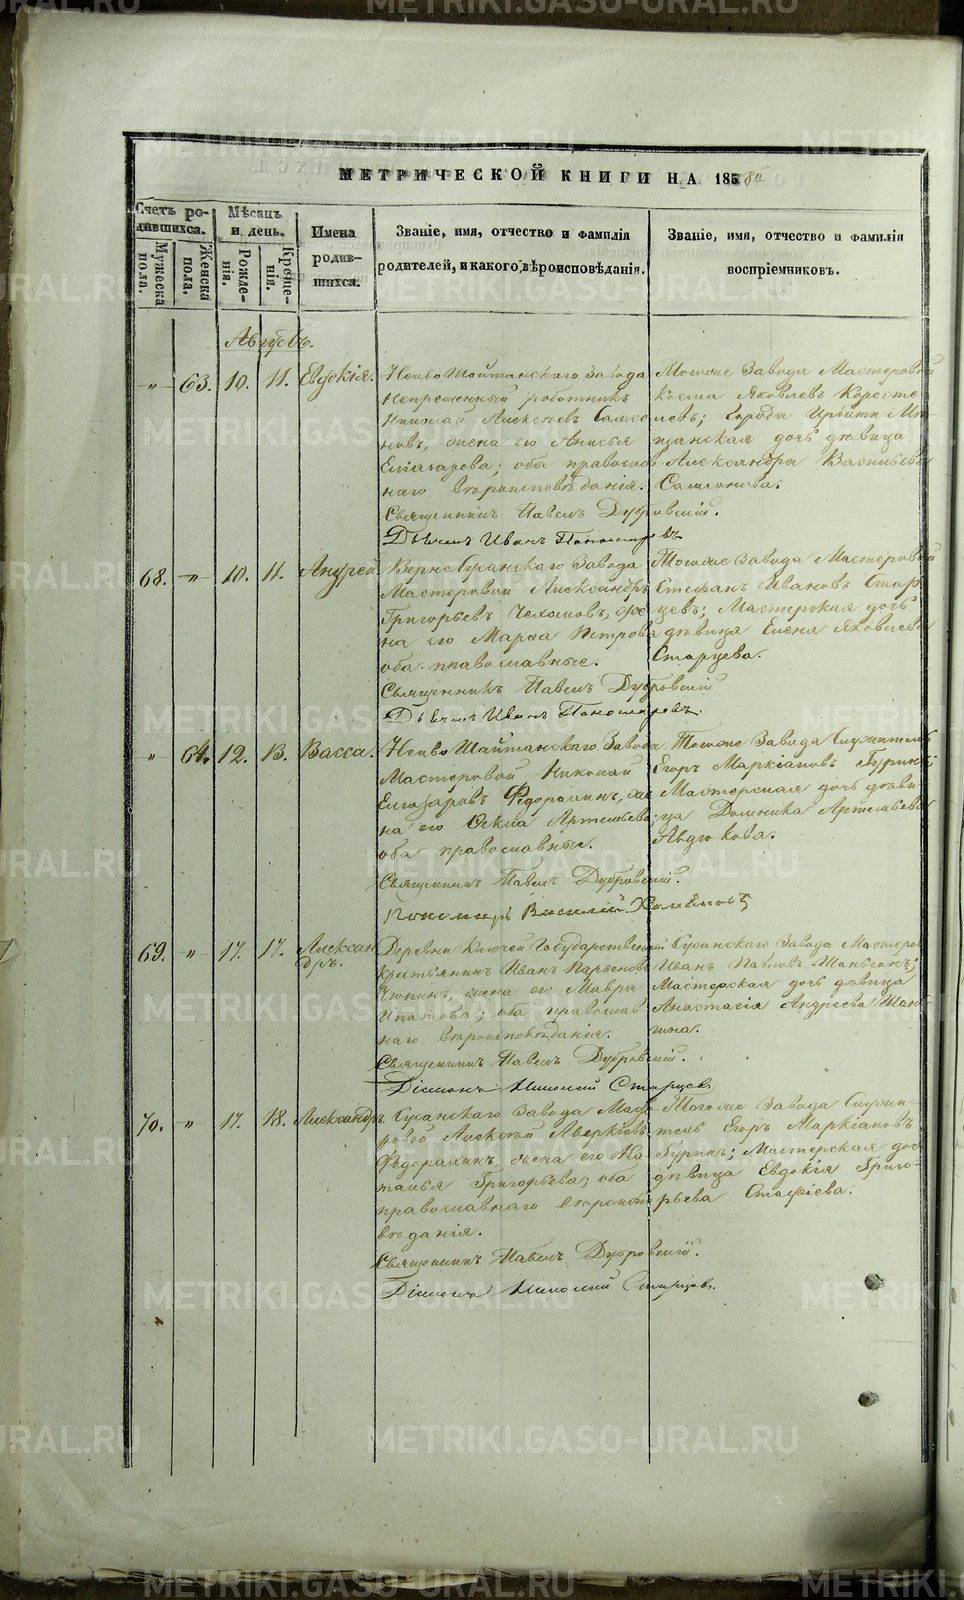 МЕТРИЧЕСКОЙ КНИГИ НА 1858й
Счетъ родившихся.
Мужеска пола.
Женска пола.
Мѣсяцъ и день.
Рожденія.
Крещенія.
Имена родившихся.
Званіе, имя, отчество и фамилія
родителей, и какого вѣроисповѣданія.
Званіе, имя, отчество и фамилія
воспріемниковъ.
Августъ.
„ 63. 10. 11. Евдокія.
Нейво Шайтанскаго Завода
непременный работникъ
Николай Алексѣевъ Самсо
новъ, жена его Анисья
Елиазарова; оба православ
наго вѣроисповѣданія.
Священникъ Павелъ Дубровскій.
Дьячекъ Иванъ Пономаревъ
Тогоже Завода Мастеровой
Козма Яковлевъ Коросте
левъ; Города Ирбити Мѣ
щанская дочь дѣвица
Александра Васильева
Самсонова.
68. „ 10. 11. Андрей
Верхне Сусанскаго Завода
Мастеровой Александръ
Григорьевъ Чехомовъ, же
на его Марѳа Петрова
оба православные.
Священникъ Павелъ Дубровскій
Дьячекъ Иванъ Пономаревъ.
Тогоже Завода Мастеровой
Стефанъ Ивановъ Стар
цевъ; Мастерская дочь
дѣвица Елена Яковлева
Старцева.
„ 64. 12. 13. Васса.
Нейво Шайтанскаго Завода
Мастеровой Николай
Елиазаровъ Ѳедорахинъ, же
на его Ѳекла Артемьева;
оба православные.
Священникъ Павелъ Дубровскій.
Пономарь Василій
Тогоже Завода Служитель
Егоръ Маркіановъ Гуринъ;
Мастерская дочь дѣви
ца Домника Артемьева
Авдюкова.
69. „ 17. 17. Алексан
дръ.
Деревни Ключей Государственный
крестьянинъ Иванъ Парѳеновъ
Чюпинъ, жена его Мавра
Ипатова; оба православ
наго вѣроисповѣданія.
Священникъ Павелъ Дубровскій.
Діаконъ Николай Старцовъ
Сусанскаго Завода Мастеров
Иванъ Павловъ Шаньгинъ;
Мастерская дочь дѣвица
Анастасія Андреева Шань
гина.
70. „ 17. 18. Александръ.
Сусанскаго Завода Масте
ровой Алексѣй Аверкіевъ
Ѳедорахинъ, жена его На
талья Григорьева; оба
православнаго вѣроиспо
вѣданія.
Священникъ Павелъ Дубровскій.
Діаконъ Николай Старцовъ.
Тогоже Завода Служи-
тель Егоръ Маркіановъ
Гуринъ; Мастерская доч
дѣвица Евдокія Григо-
рьева Стафіева.